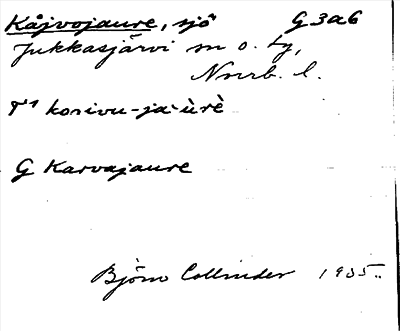 Kåjvojaure, sjö G3a6
Jukkasjärvi sn o. tg,
Norrb. l.
kosivu-ja·ùrè
G Karvajaure
Björn Collinder 1935